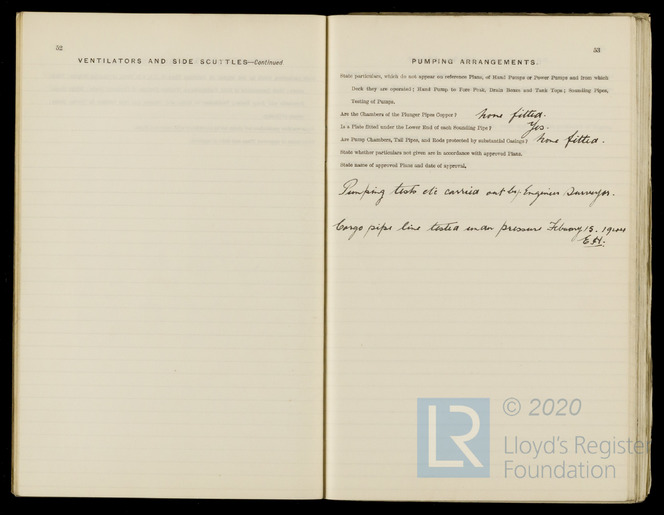 52
VENTILATORS AND SIDE SCUTTLES—Continued
53
PUMPING ARRANGEMENTS.
State particulars, which do not appear on reference Plans, of Hand Pumps or Power Pumps and from which
Deck they are operated; Hand Pump to Fore Peak, Drain Boxes and Tank Tops; Sounding Pipes,
Testing of Pumps.
Are the Chambers of the Plunger Pipes Copper? None fitted.
Is a Plate fitted under the Lower End of each Sounding Pipe? Yes.
Are Pump Chambers, Tail Pipes, and Rods protected by substantial Casings? None fitted.
State whether particulars not given are in accordance with approved Plans.
State name of approved Plans and date of approval.
Pumping tests etc carried out by Engineer Surveyor.
Cargo pipe line tested under pressure February 15.
© 2020
LR
Lloyd's Register
Foundation